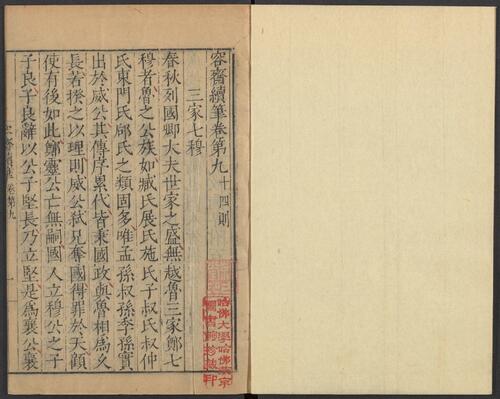 容齋續筆卷第九 十四則
三家七穆
春秋列國卿大夫世家之盛無越魯三家鄭七
穆者魯之公族如臧氏展氏施氏子叔氏叔仲
氏東門氏郈氏之類固多唯孟孫叔孫季孫實
出於威公其傳序累代皆秉國政與魯相爲久
長若揆之以理則威公弑兄奪國得罪於天顧
使有後如此鄭靈公亡無嗣國人立穆公之子
子良子良辭以公子堅長乃立堅是爲襄公襄
卷第九
一
哈佛大學哈佛燕京
圖書館珍藏印